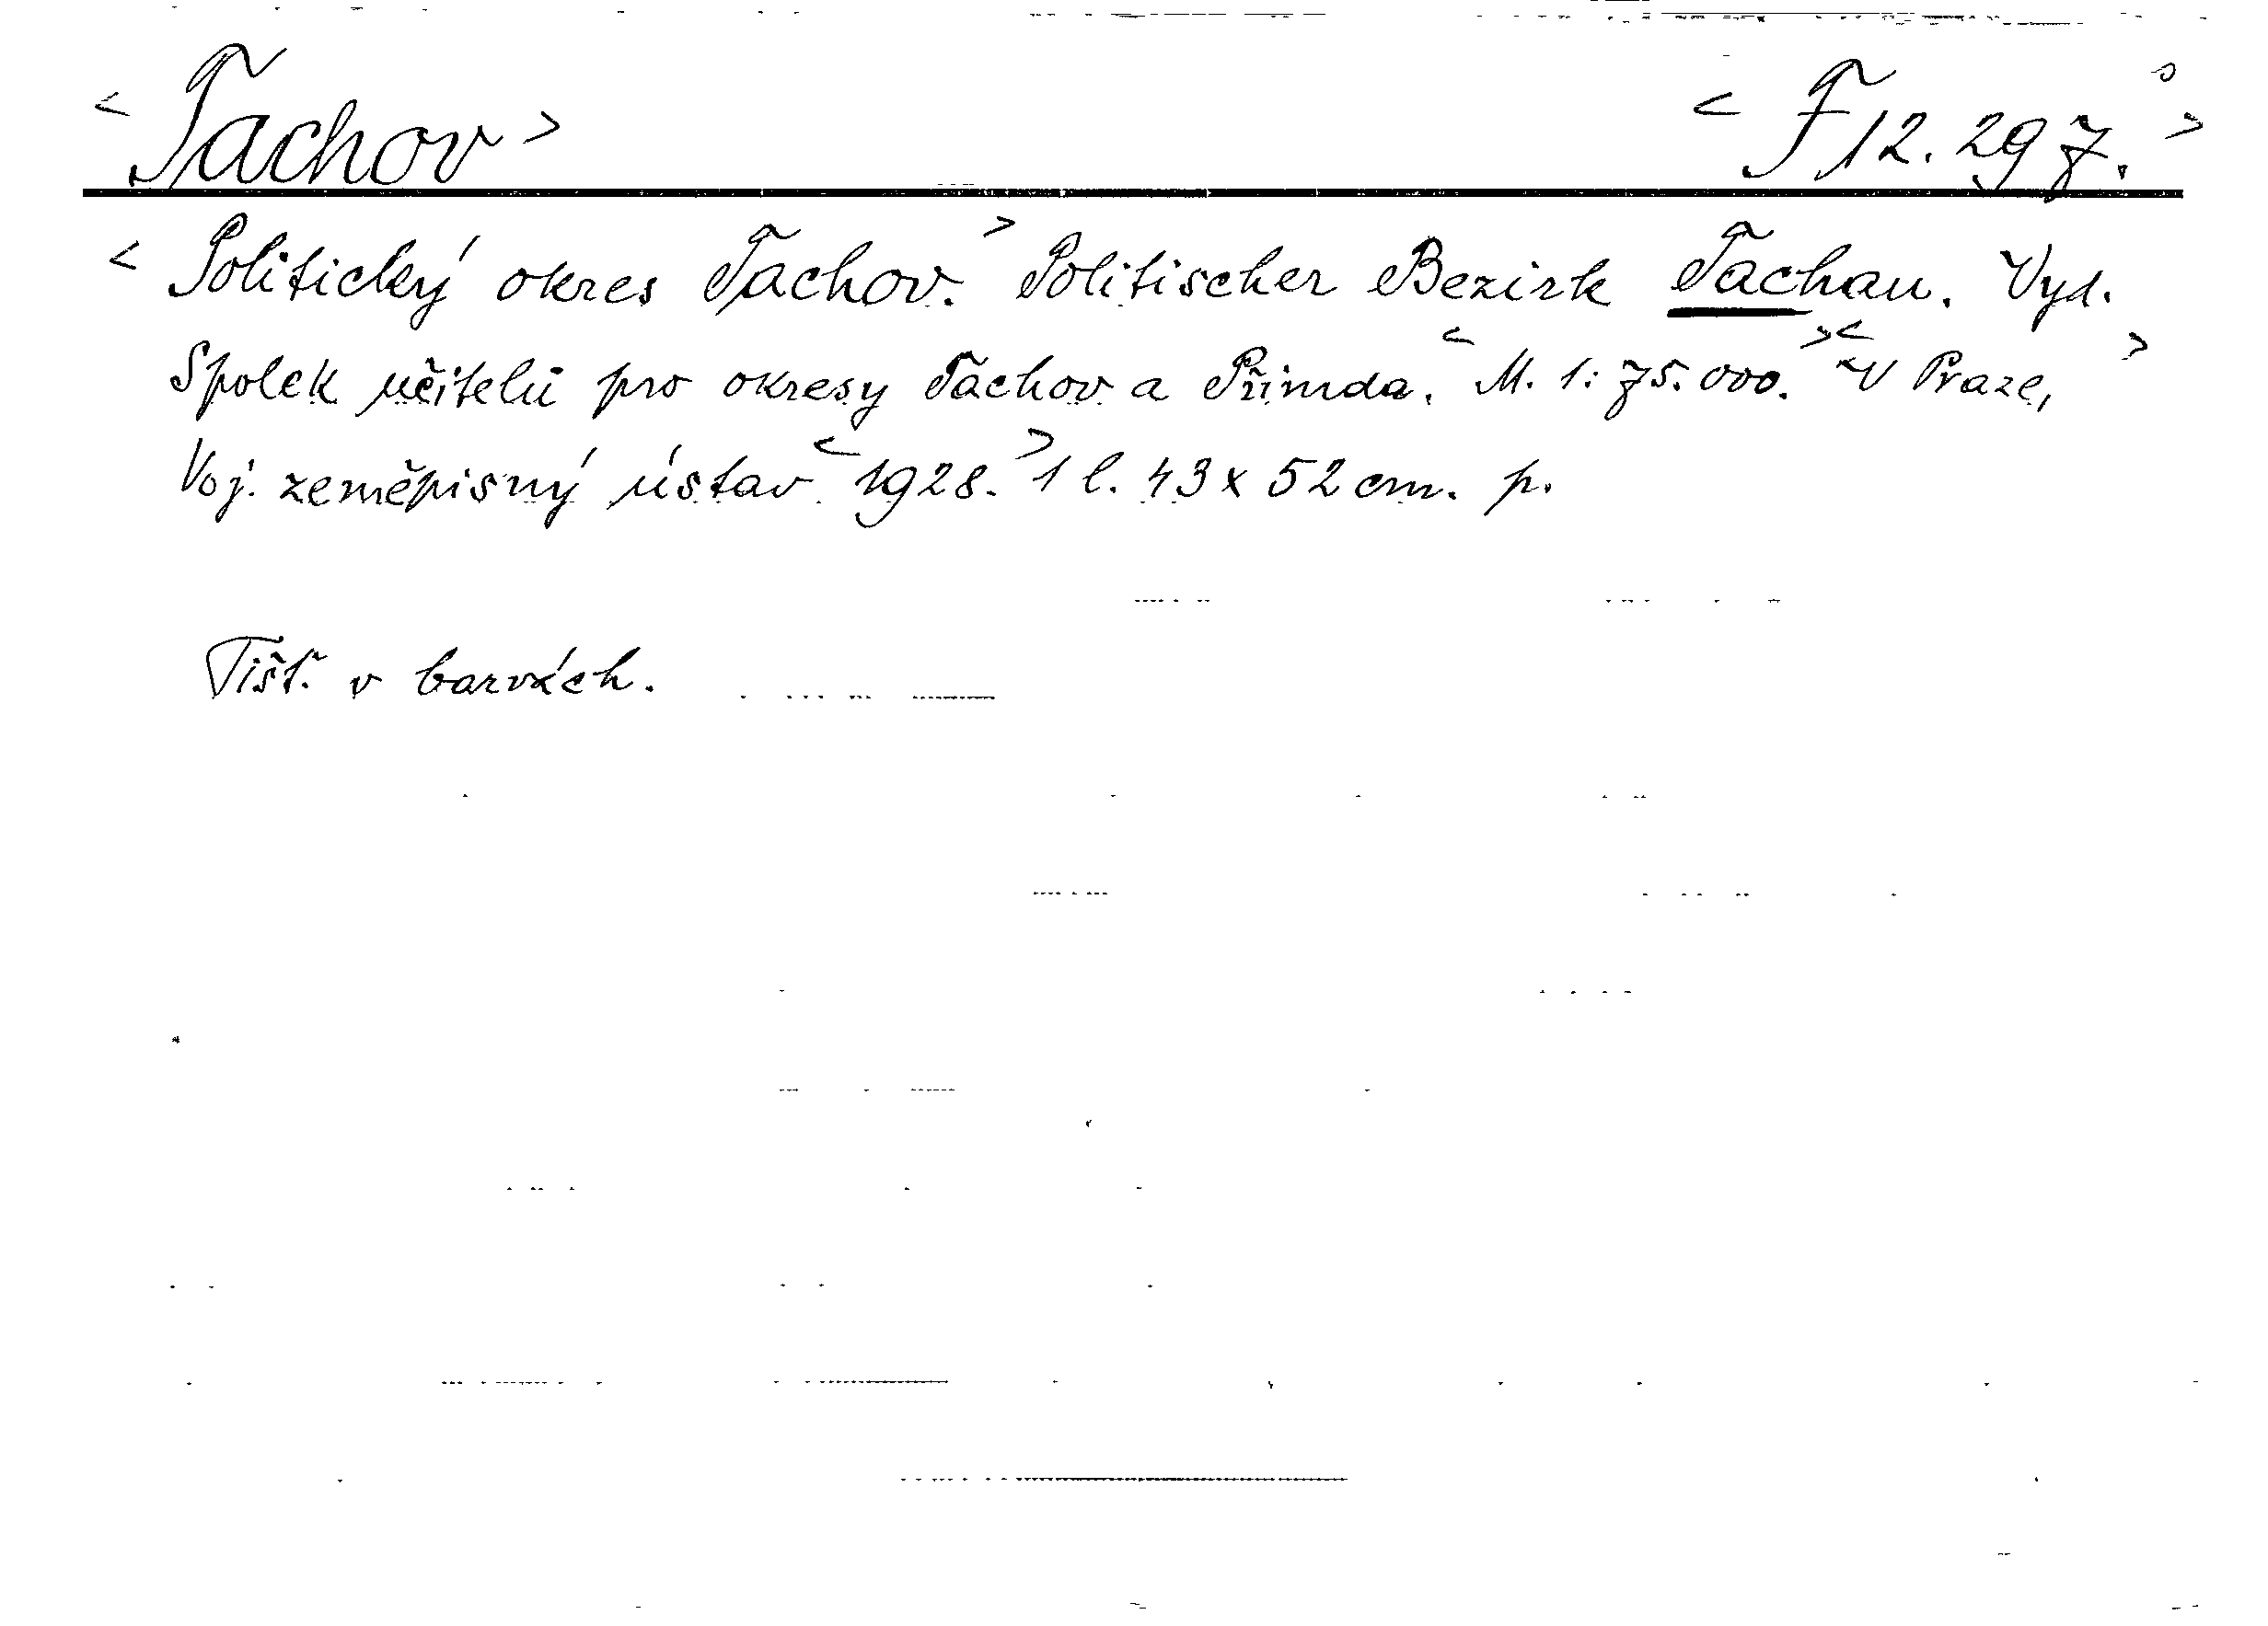 <Tachov> <F 12.297.>
<Politický okres Tachov.> Politischer Bezirk Tachau. Vyd.
Spolek učitelů pro okresy Tachov a Přimda. <M. 1:75.000.> <V Praze,>
Voj. zeměpisný ústav <1928.> 1 l. 43 x 52 cm. p.
Tišť. v barvách.